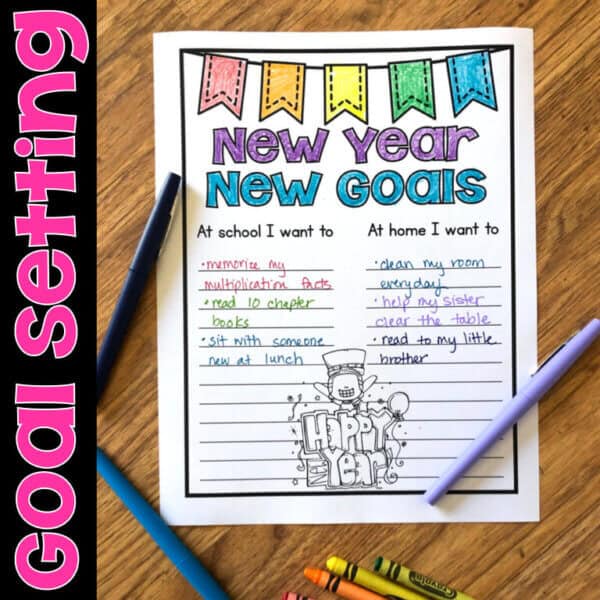 Goal Setting
New Year
New Goals
At school I want to
• memorize my
multiplication facts
• read 10 chapter
books
• sit with someone
new at lunch
At home I want to
• clean my room
everyday
• help my sister
clear the table
• read to my little
brother
Happy
New Year
Crayola